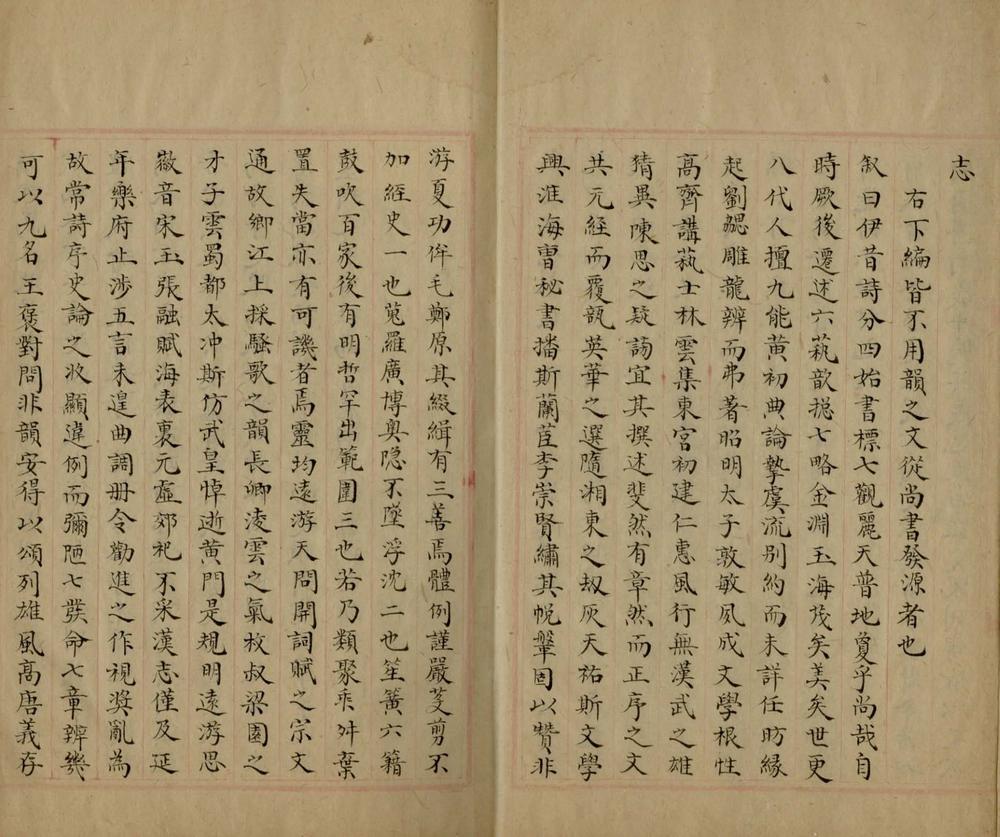 志
右下編皆不用韻之文從尚書發源者也
敘曰伊昔詩分四始書標七觀麗天普地夐乎尚哉自
時厥後遷述六蓺歆摠七略金淵玉海茂矣美矣世更
八代人擅九能黄初典論摯虞流别約而未詳任昉緣
起劉勰雕龍辨而弗著昭明太子敦敏夙成文學根性
高齊講蓺士林雲集東宮初建仁惠風行無漢武之雄
猜異陳思之疑謗宜其撰述斐然有章然而正序之文
共元經而覆瓿英華之選隨湘東之刼灰天祐斯文學
興淮海曹秘書播斯蘭茝李崇賢繡其帨鞶固以贊非
游夏功侔毛鄭原其綴緝有三善焉體例謹嚴芟剪不
加經史一也蒐羅廣博奥隐不墜浮沈二也笙簧六籍
鼓吹百家後有明哲罕出範圍三也若乃類聚乖舛棄
置失當亦有可譏者焉靈均遠游天問開詞賦之宗文
通故鄉江上採騷歌之韻長卿淩雲之氣枚叔梁園之
才子雲蜀都太冲斯仿武皇悼逝黄門是規明遠游思
徽音宋玉張融賦海表裏元虛郊祀不采漢志僅及延
年樂府止涉五言未遑曲調册令勸進之作視奬亂為
故常詩序史論之收顯違例而彌陋七發命七章辨幾
可以九名王褒對問非韻安得以頌列雄風高唐義存